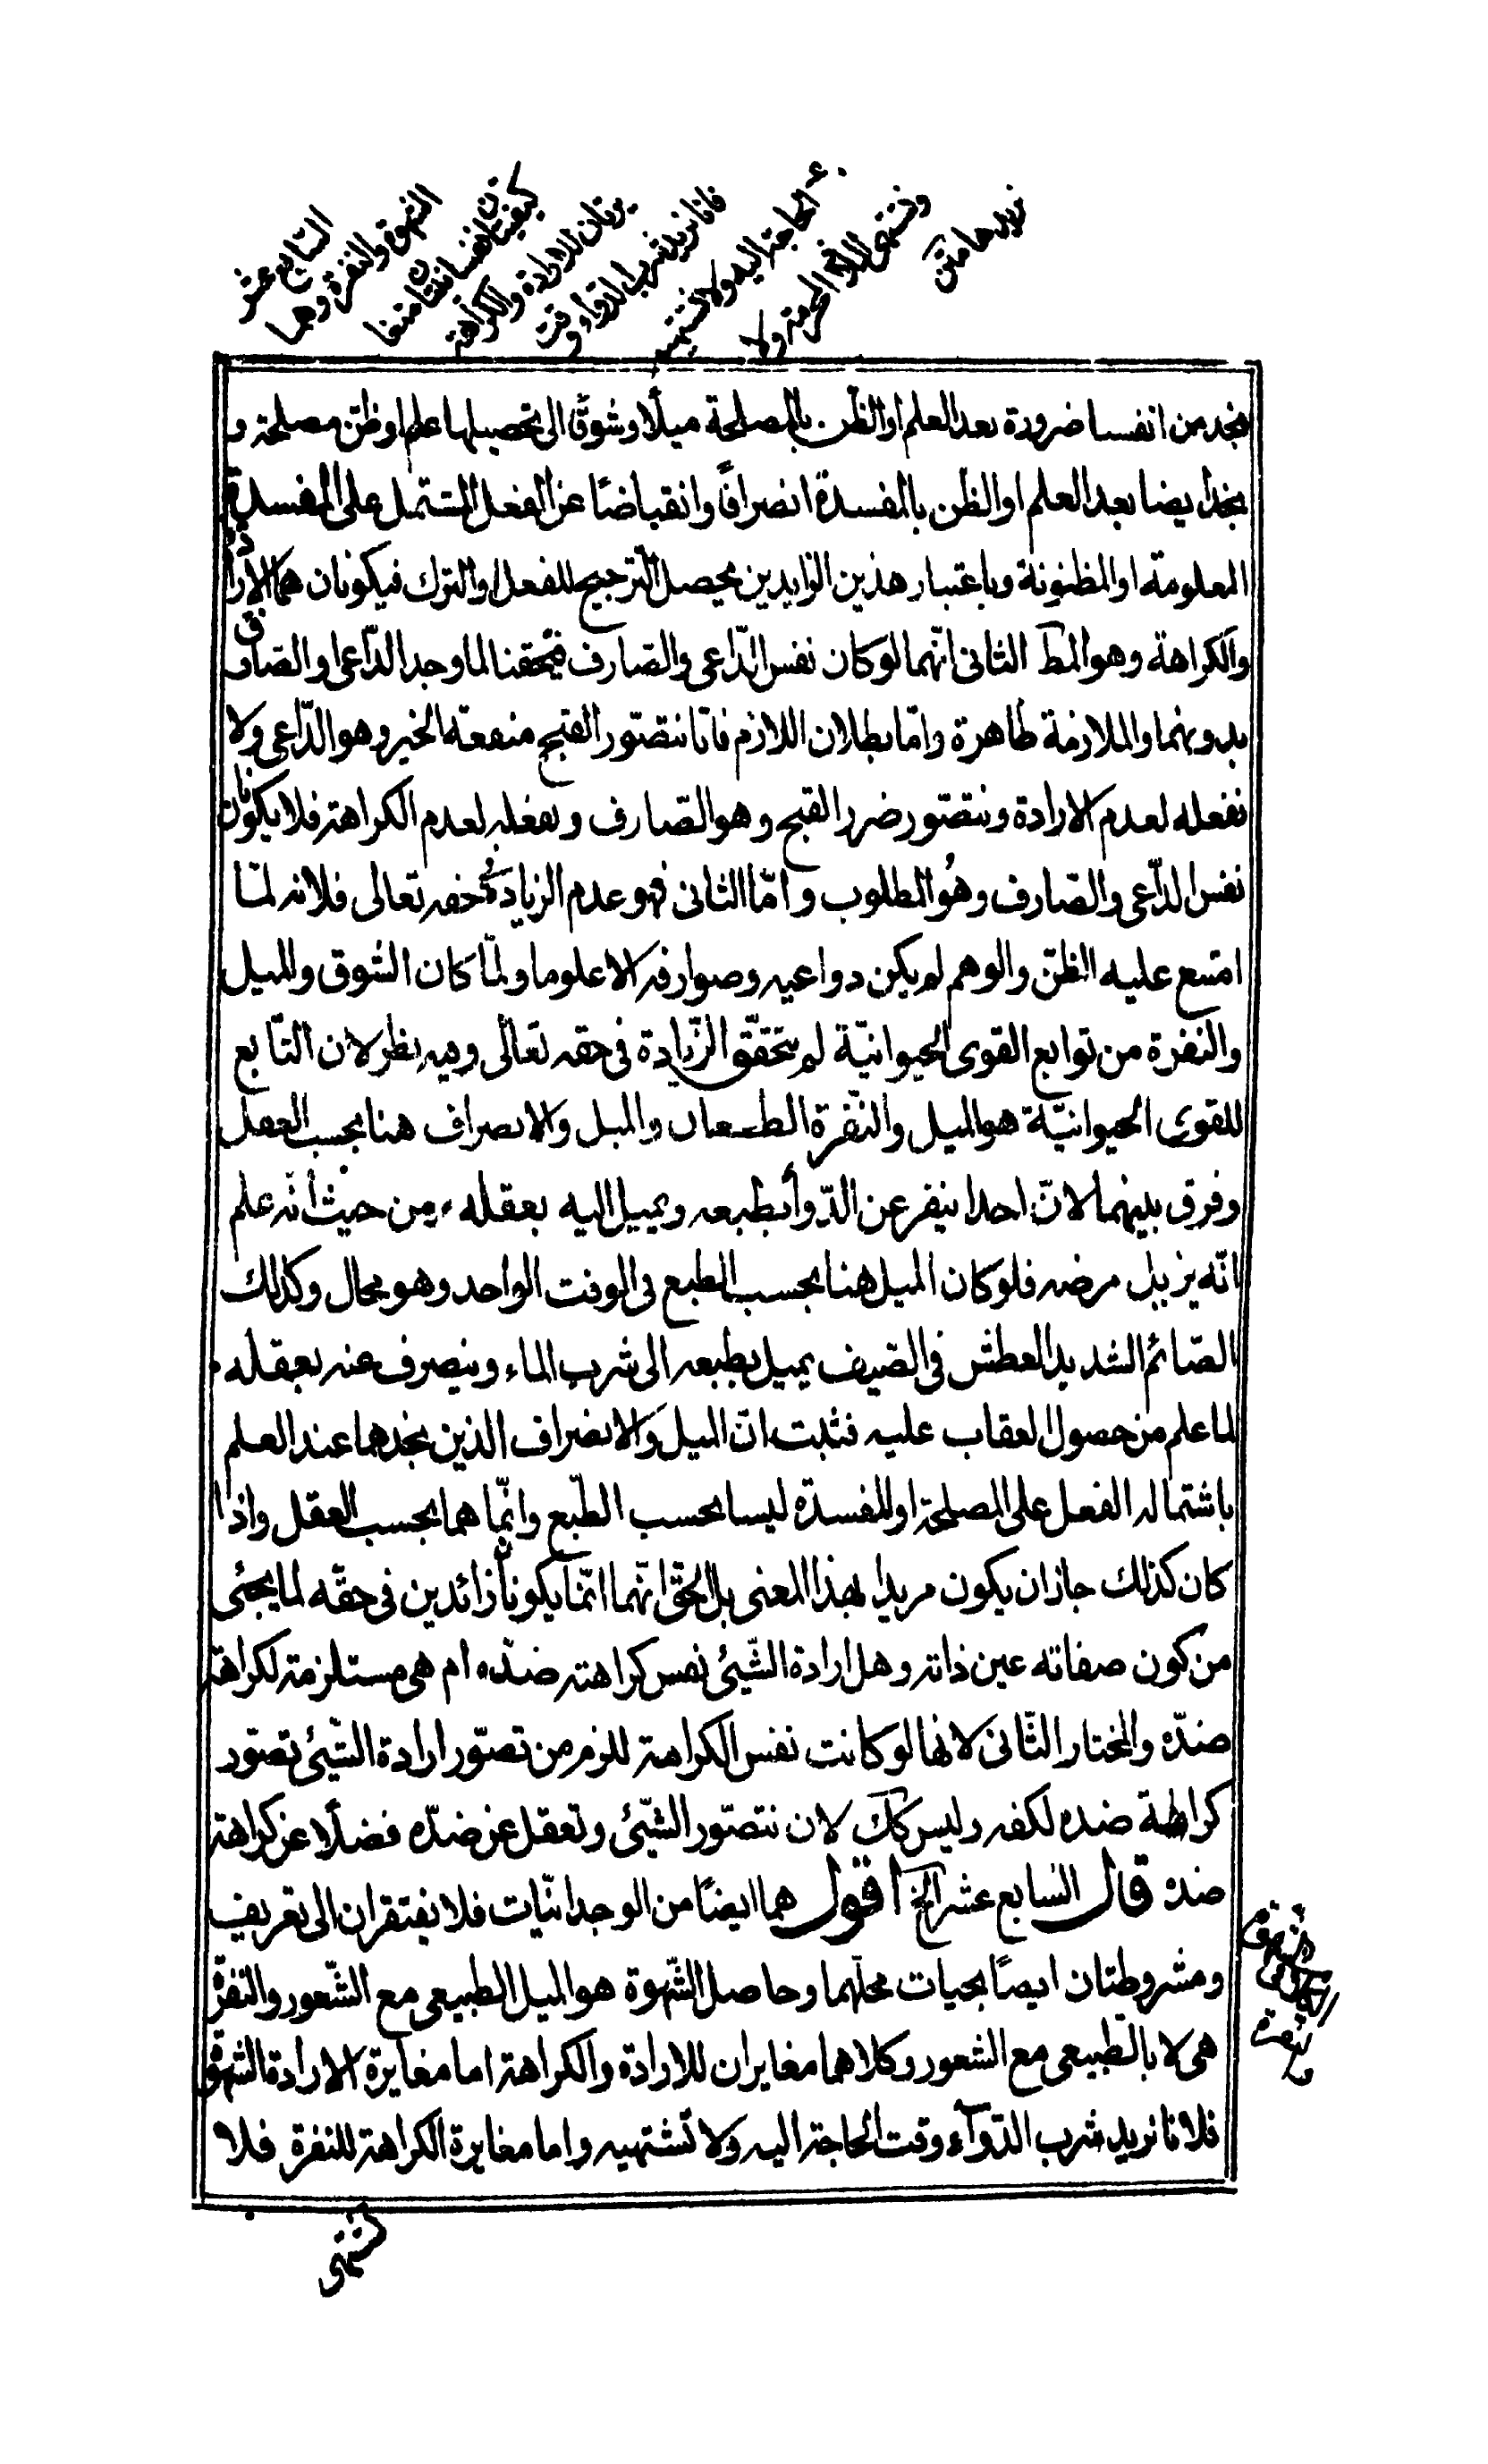 السابع عشر
الشهوة والنفرة وهما
كيفيتان نفسانيتان
للارادة والكراهة
فانا نريد شرب الدواء وقت
الحاجة اليه ولا نشتهيه
ونشتهى المحرمة ولا
نريدها متن
نجد من انفسنا ضرورة بعد العلم او الظن بالمصلحة ميلًا وشوقًا الى تحصيلها علم او ظن مصلحته و
نجد ايضا بعد العلم او الظن بالمفسدة انصرافًا وانقباضًا عن الفعل المشتمل على المفسدة
المعلومة او المظنونة وباعتبار هذين الزايدين يحصل الترجيح للفعل او الترك فيكونان هما الارادة
والكراهة وهو المط الثانى انّهما لو كان نفس الدّاعى والصّارف فتحققنا لما وجد الدّاعى او الصّارف
بدونهما والملازمة ظاهرة وامّا بطلان اللازم فانّا نتصّور القبح منفعة الخير وهو الدّاعى ولا
نفعله لعدم الارادة ونتصّور ضرر القبح وهو الصّارف ونفعله لعدم الكراهة فلا يكونان
نفس الدّاعى والصّارف وهُو المطلوب وامّا الثانى فهو عدم الزيادة فى حقه تعالى فلانه لمّا
امتنع عليه الظنّ والوهم لم يكن دواعيه وصوارفه الا علوما ولمّا كان الشوق والميل
والنفرة من توابع القوى الحيوانيّة لم يتحقّق الزّيادة فى حقه تعالى وفيه نظر لان التّابع
للقوى الحيوانيّة هو الميل والنّفرة الطبيعيان والميل والانصراف هنا بحسب العقل
وفرق بينهما لانّ احدا ينفر عن الدّوأ بطبعه ويميل اليه بعقله من حيث أنّه علم
انّه يزيل مرضه فلو كان الميل هنا بحسب الطبع فى الوقت الواحد وهو محال وكذلك
الصّائم الشديد العطش فى الصّيف يميل بطبعه الى شرب الماء وينصرف عنه بعقله
لما علم من حصول العقاب عليه فثبت انّ الميل والانصراف الذين نجدهما عند العلم
باشتماله الفعل على المصلحة او المفسدة ليسا بحسب الطّبع وانّما هما بحسب العقل واذا
كان كذلك جاز ان يكون مريدا بهذا المعنى بل الحقّ انّهما انّما يكونان زائدين فى حقّه لما يجيئ
من كون صفاته عين ذاته وهل ارادة الشّيئ نفس كراهته ضدّه ام هى مستلزمة لكراهة
ضدّه والمختار الثّانى لانها لو كانت نفس الكراهة للزم من تصوّر ارادة الشّيئ تصوّر
كراهة ضده لكنه وليس كك لان نتصّور الشّيئ ونعقل عن ضدّه فضلًا عن كراهة
ضده قال السابع عشر الخ اقول هما ايضًا من الوجدانيّات فلا يفتقران الى تعريف
ومشروطتان ايضًا بحيات محلّهما وحاصل الشّهوة هو الميل الطبيعى مع الشّعور والنفرّة
هى لا بالطّبيعى مع الشعور وكلاهما مغايران للارادة والكراهة اما مغايرة الارادة الشهوة
فلانا نريد شرب الدّوآء وقت الحاجة اليه ولا نشتهيه واما مغايرة الكراهة للنفرة فلا
نشتهى